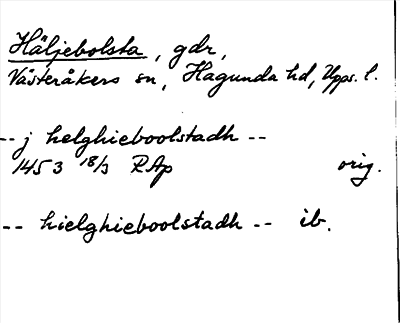 Häljebolsta, gdr,
Västeråkers sn, Hagunda hd, Upps. l.
-- j helghieboolstadh --
1453 18/3 RAp orig.
-- hielghieboolstadh -- ib.